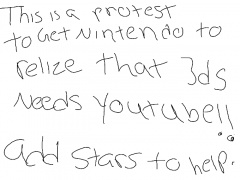 This is a protest
to Get Nintendo to
relize that 3ds
Needs Youtube!!
add Stars to help.